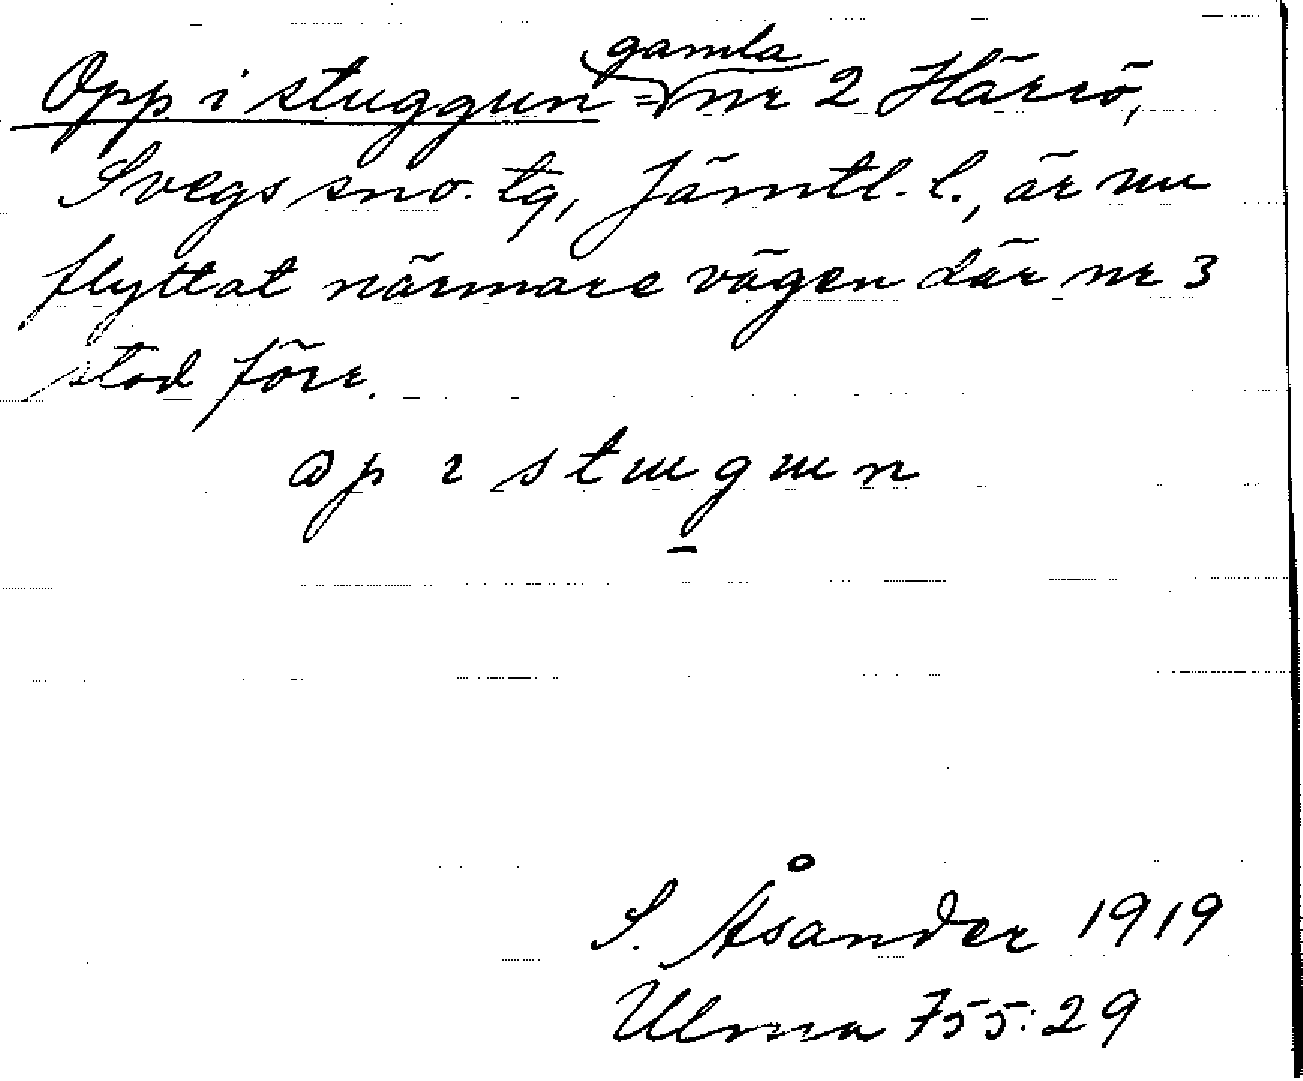 Opp i stuggun = gamla nr 2 Härrö,
Svegs sno. tg, Jämtl. l., är nu
flyttat närmare vägen där nr 3
stod förr.
op ı stugun
S. Åsander 1919
Ulma 755:29